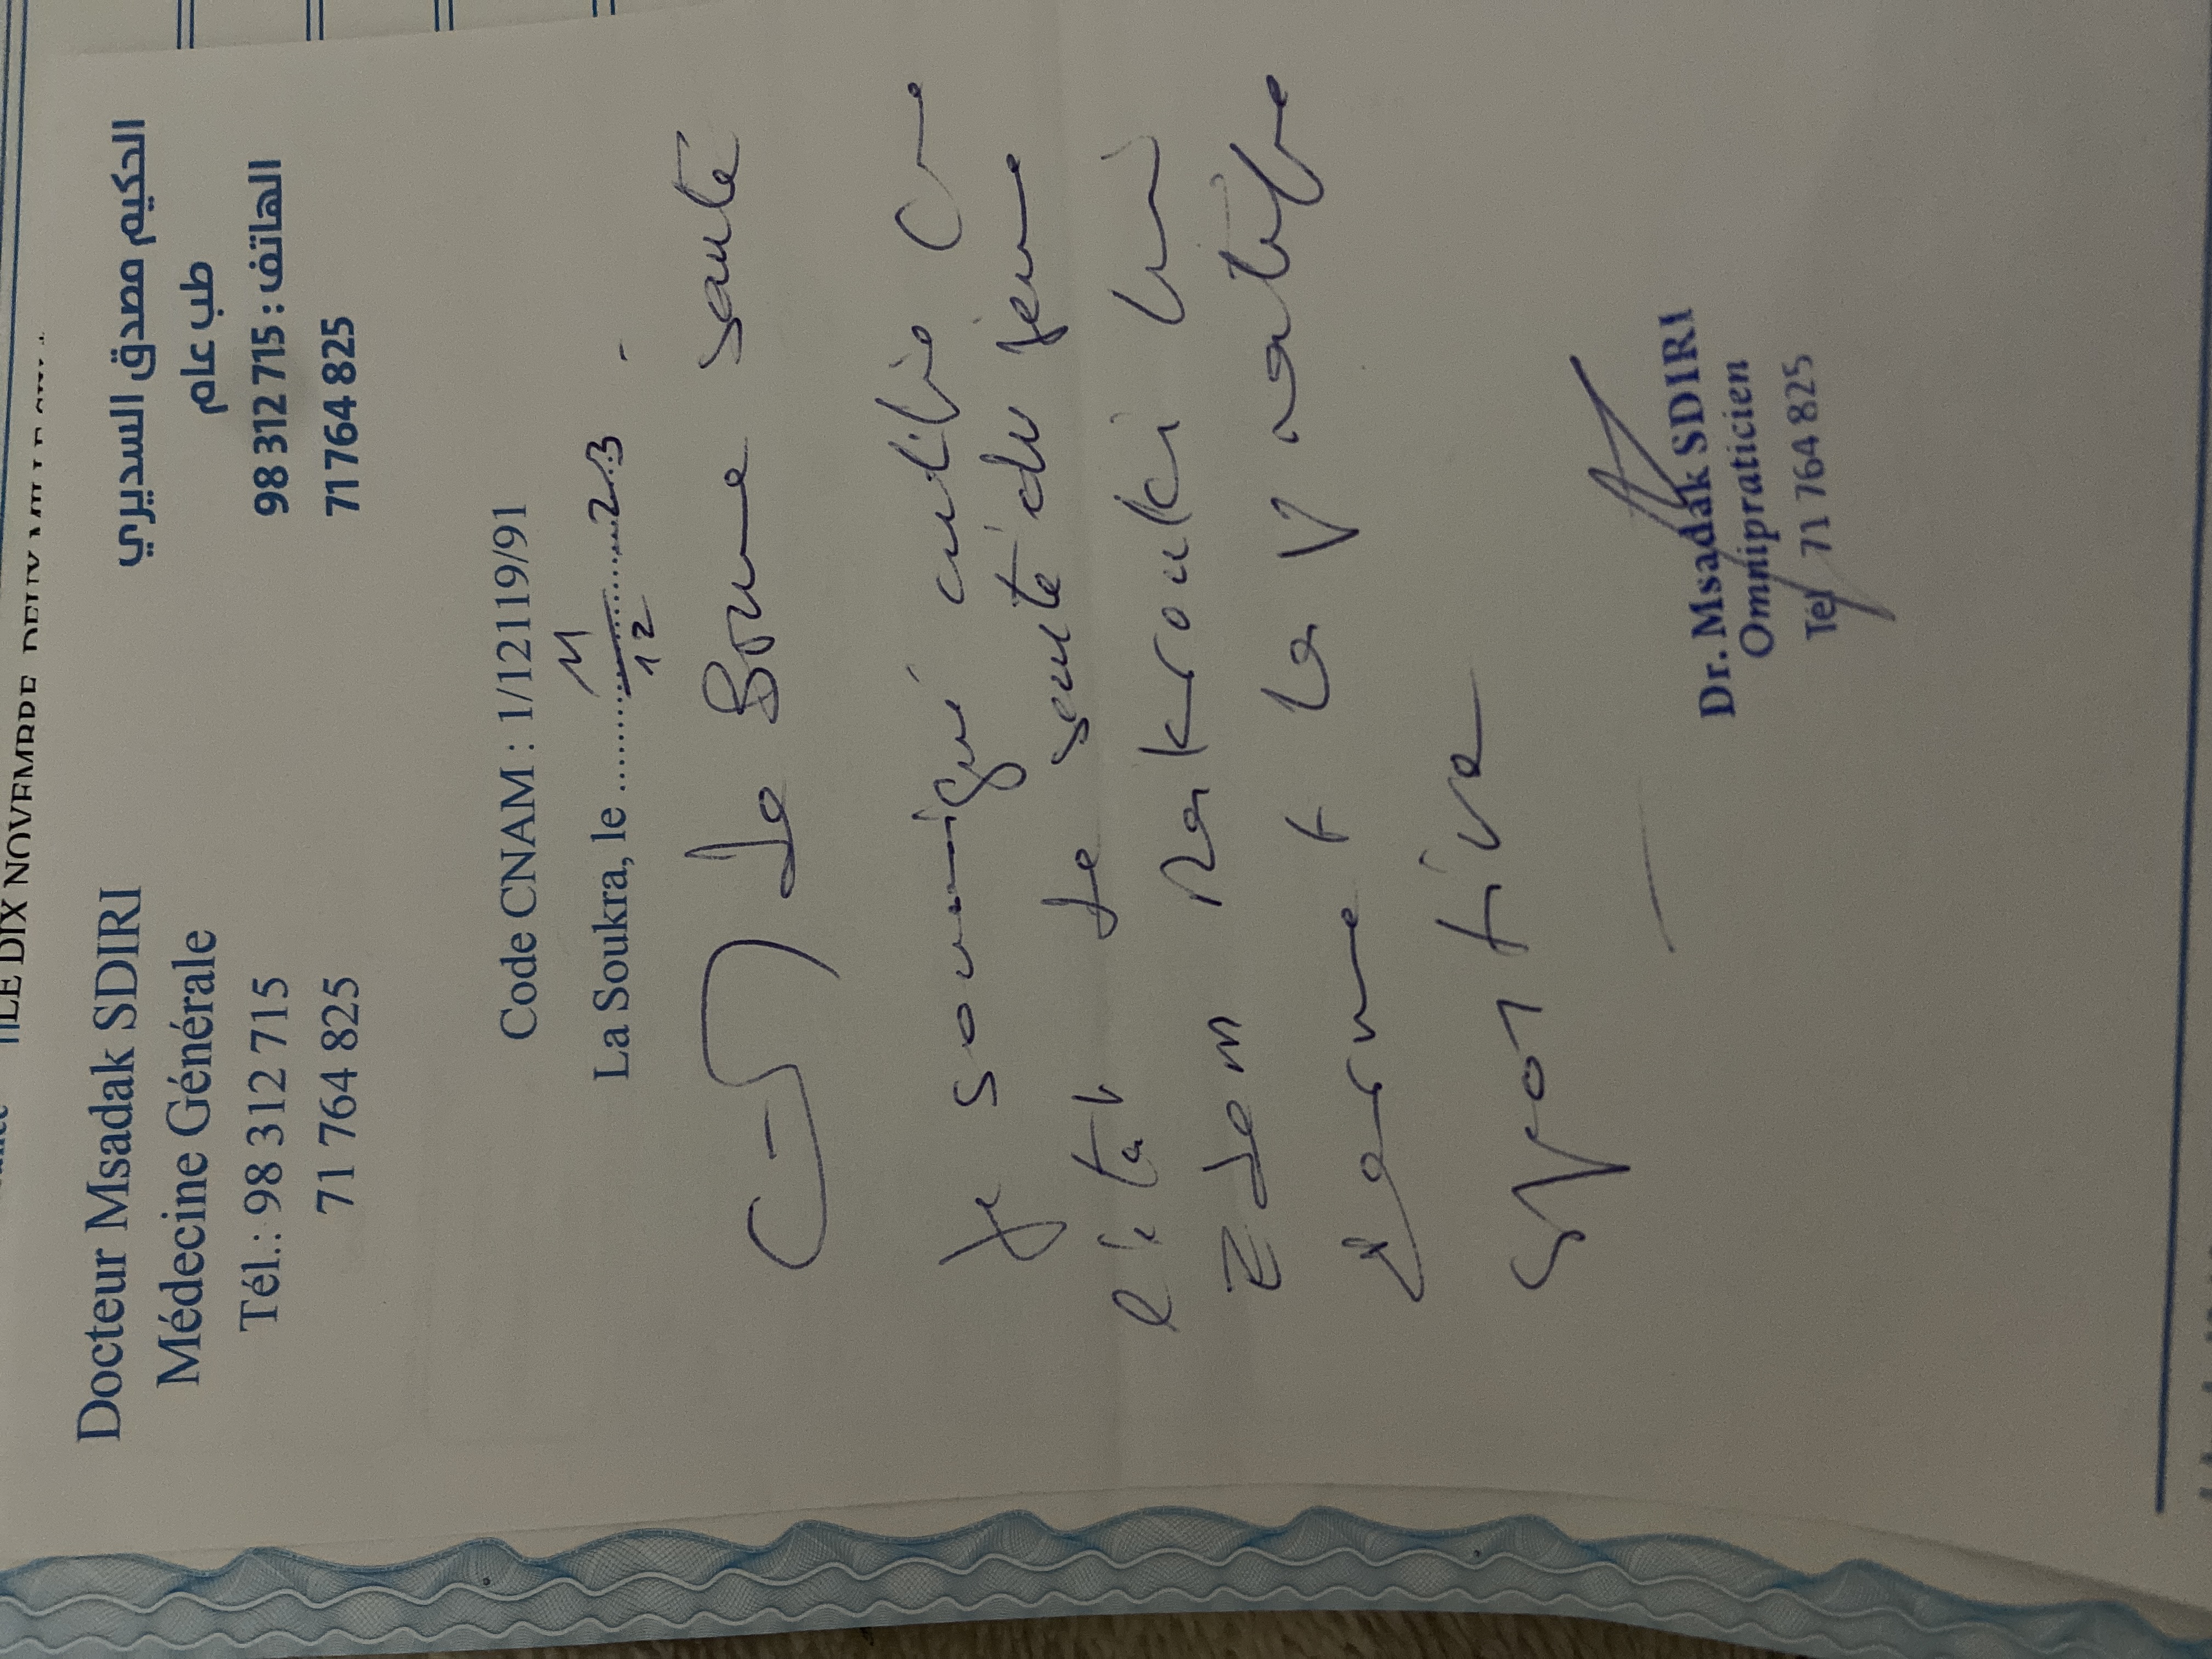 LE DIX NOVEMBRE DEUX MILLE
Docteur Msadak SDIRI
Médecine Générale
Tél.: 98 312 715
71 764 825
الحكيم مصدق السديري
طب عام
الهاتف : 715 312 98
71 764 825
Code CNAM : 1/12119/91
La Soukra, le 11/12 23
de Bonne santé
Je soussigné certifie que
l'état de santé du jeune
Edem Makrouki lui
permet la pratique
sportive
Dr. Msadak SDIRI
Omnipraticien
Tél 71 764 825